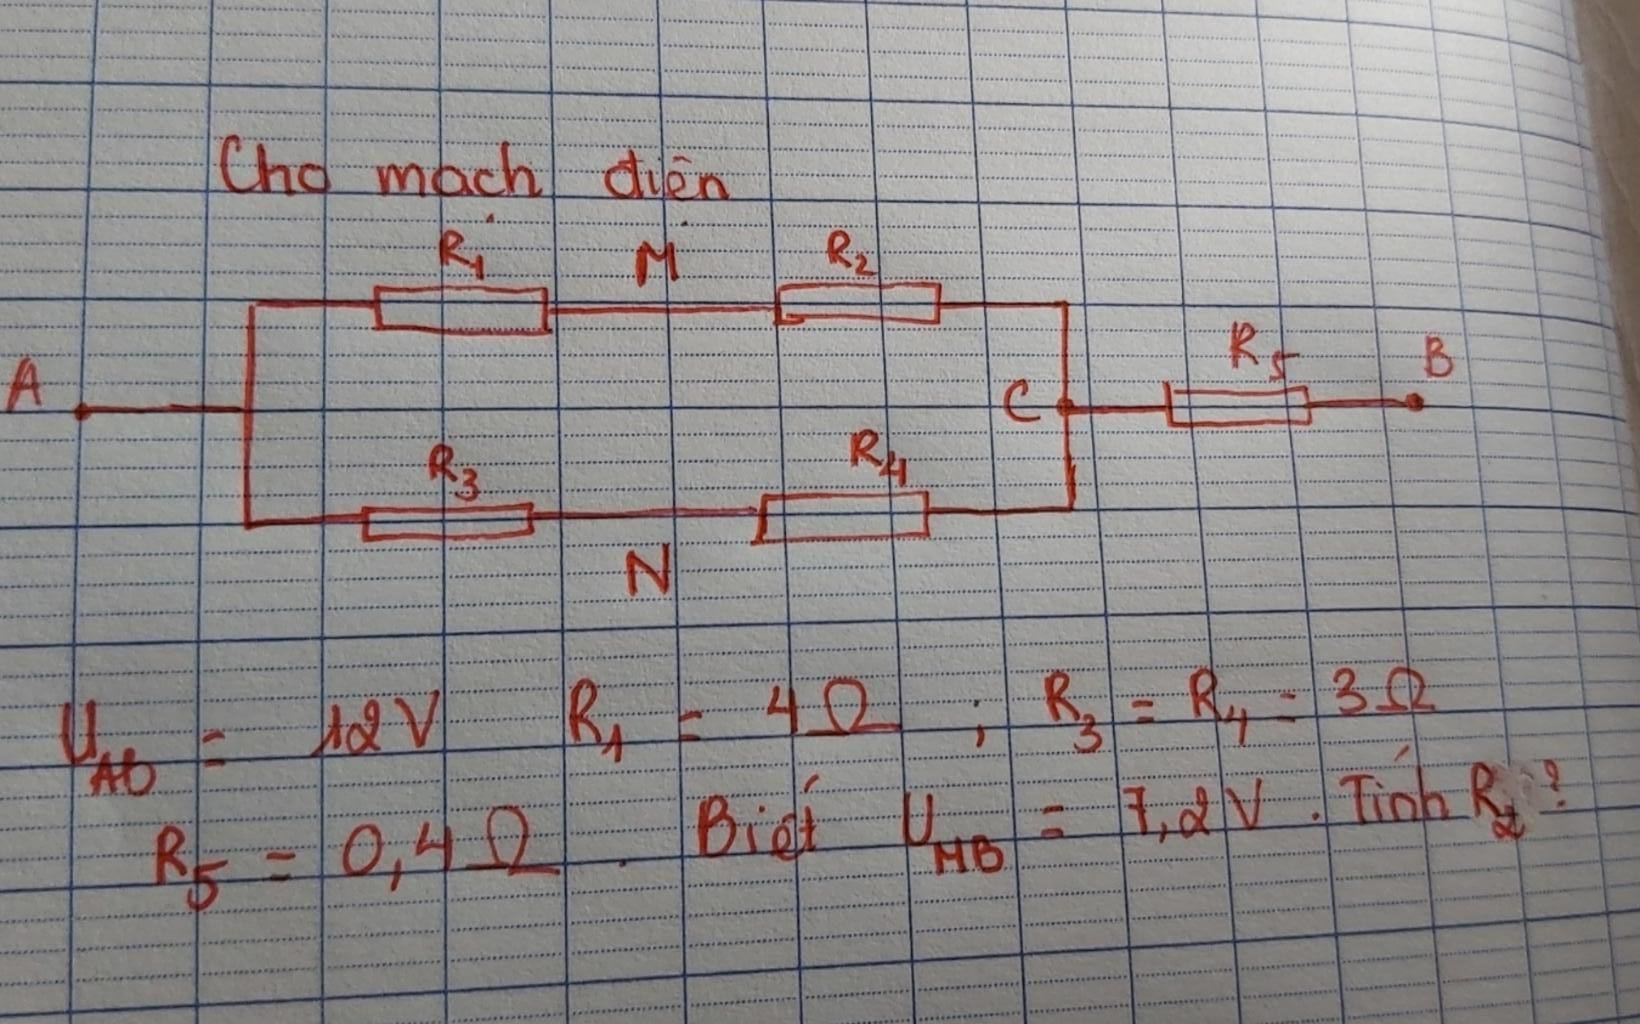 Cho mạch điện
R₁ M R₂
A C R₅ B
R₃ R₄
N
U_AB = 12V R₁ = 4Ω ; R₃ = R₄ = 3Ω
R₅ = 0,4Ω . Biết U_MB = 7,2V . Tính R₂?